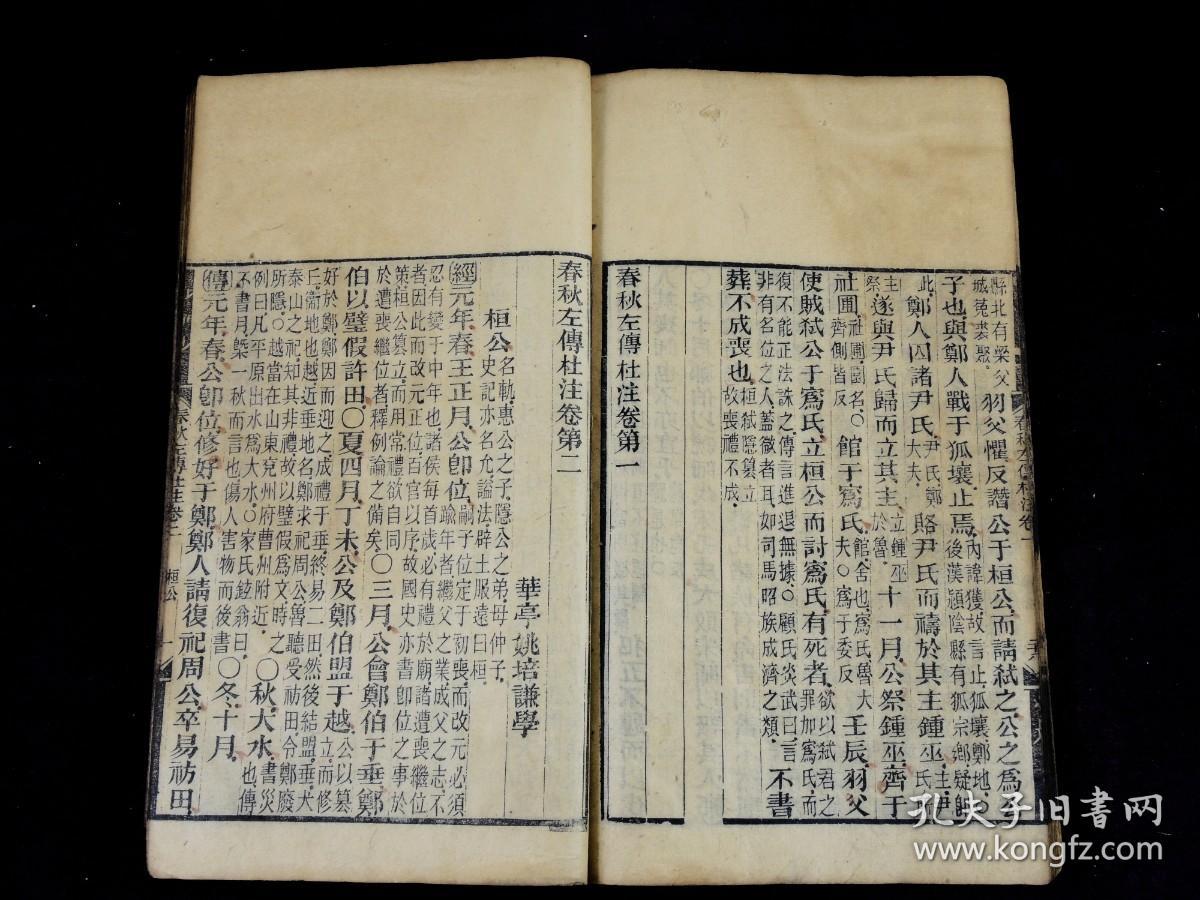 縣北有羽父懼反譖公于桓公而請弒之公之為公
城菟裘聚。
子也與鄭人戰于狐壤止焉內諱獲故言止狐壤鄭地。○
後漢潁陰縣有狐宗鄉疑卽
此鄭人囚諸尹氏尹氏鄭大夫。賂尹氏而禱於其主鍾巫主尹氏所
祭主遂與尹氏歸而立其主立鍾巫於魯。十一月公祭鍾巫齊于
社圃社圃園名。○齊側皆反館于寪氏館舍也寪氏魯大夫○寪于委反壬辰羽父
使賊弒公于寪氏立桓公而討寪氏有死者欲以弒君之罪加寪氏而
復不能正法誅之傳言進退無據。○顧氏炎武曰言
非有名位之人蓋微者耳如司馬昭族成濟之類。不書
葬不成喪也桓弒隱簒立故喪禮不成。
春秋左傳杜注卷第一
春秋左傳杜注卷第二
華亭姚培謙學
桓公名軌惠公之子隱公之弟母仲子。史記亦名允謚法辟土服遠曰桓。
經元年春王正月公卽位嗣子位定于初喪而改元必須
踰年者繼父之業成父之志不
忍有變于中年也諸侯每首歲必有禮於廟諸遭喪繼位
者因此而改元正位百官以序故國史亦書卽位之事於
策桓公簒立而用常禮欲自同
於遭喪繼位者釋例論之備矣○三月公會鄭伯于垂鄭
伯以璧假許田○夏四月丁未公及鄭伯盟于越公以簒立而修
好於鄭鄭因而迎之成禮于垂終易二田然後結盟垂犬
丘衞地也越近垂地名鄭求祀周公魯聽受祊田令鄭廢
泰山之祀知其非禮故以璧假為文時之
所隱○越當在山東兗州府曹州附近。○秋大水書災也傳
例曰凡平原出水為大水○家氏鉉翁曰
不書月槩一秋而言也傷人害物而後書○冬十月。
傳元年春公卽位修好于鄭鄭人請復祀周公卒易祊田
春秋左傳杜注卷一
春秋左傳杜注卷二
桓公
一
孔夫子旧书网
www.kongfz.com